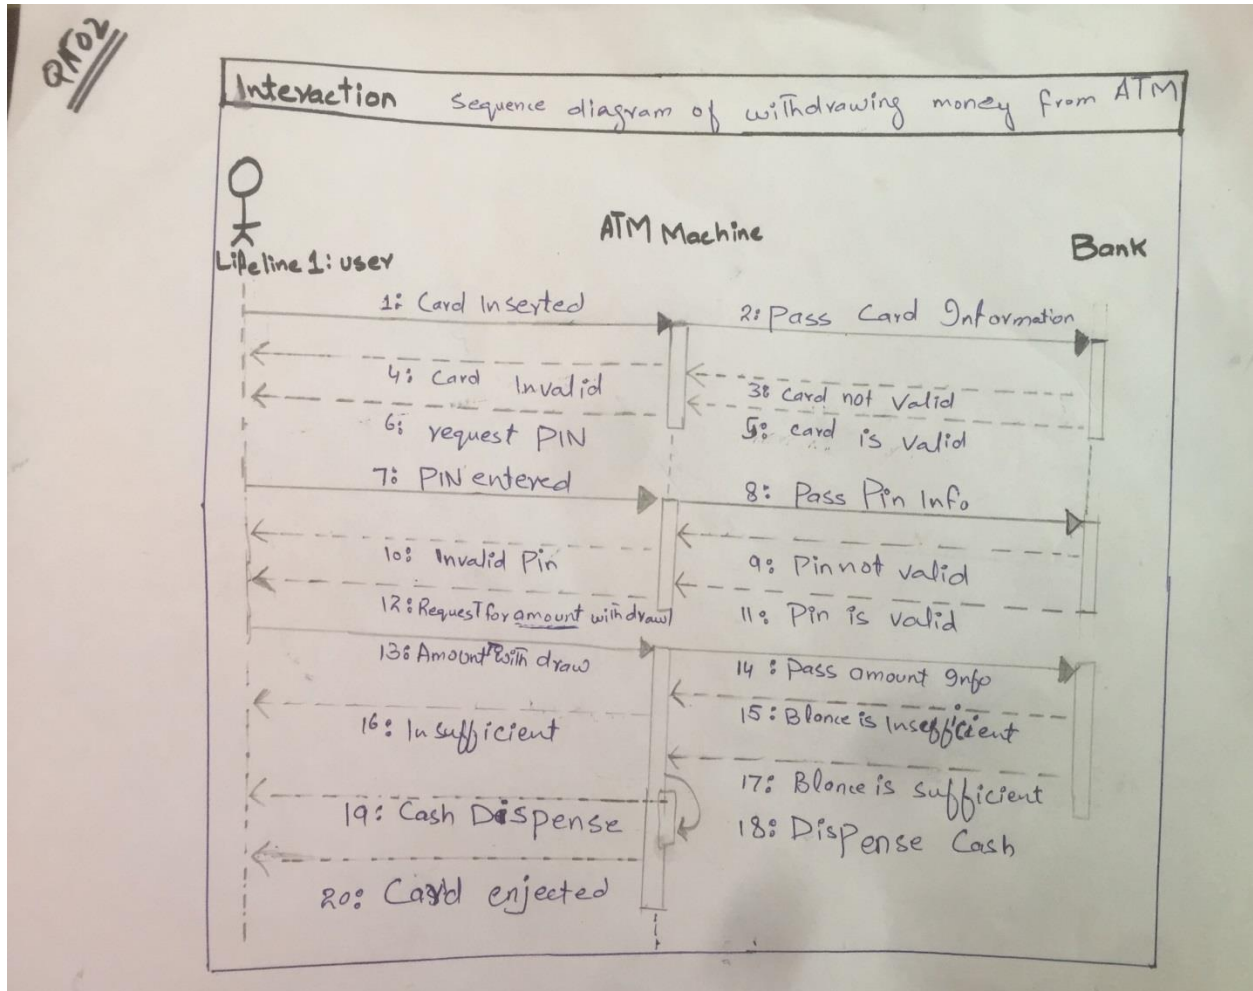 QNO2
Interaction Sequence diagram of withdrawing money from ATM
ATM Machine
Bank
Lifeline 1: user
1: Card Inserted
2: Pass Card Information
4: Card Invalid
3: Card not Valid
6: request PIN
5: card is Valid
7: PIN entered
8: Pass Pin Info
10: Invalid Pin
9: Pin not valid
12: Request for amount withdrawl
11: Pin is valid
13: Amount with draw
14: Pass amount Info
16: Insufficient
15: Blance is Insefficient
17: Blance is sufficient
19: Cash Dispense
18: Dispense Cash
20: Card enjected